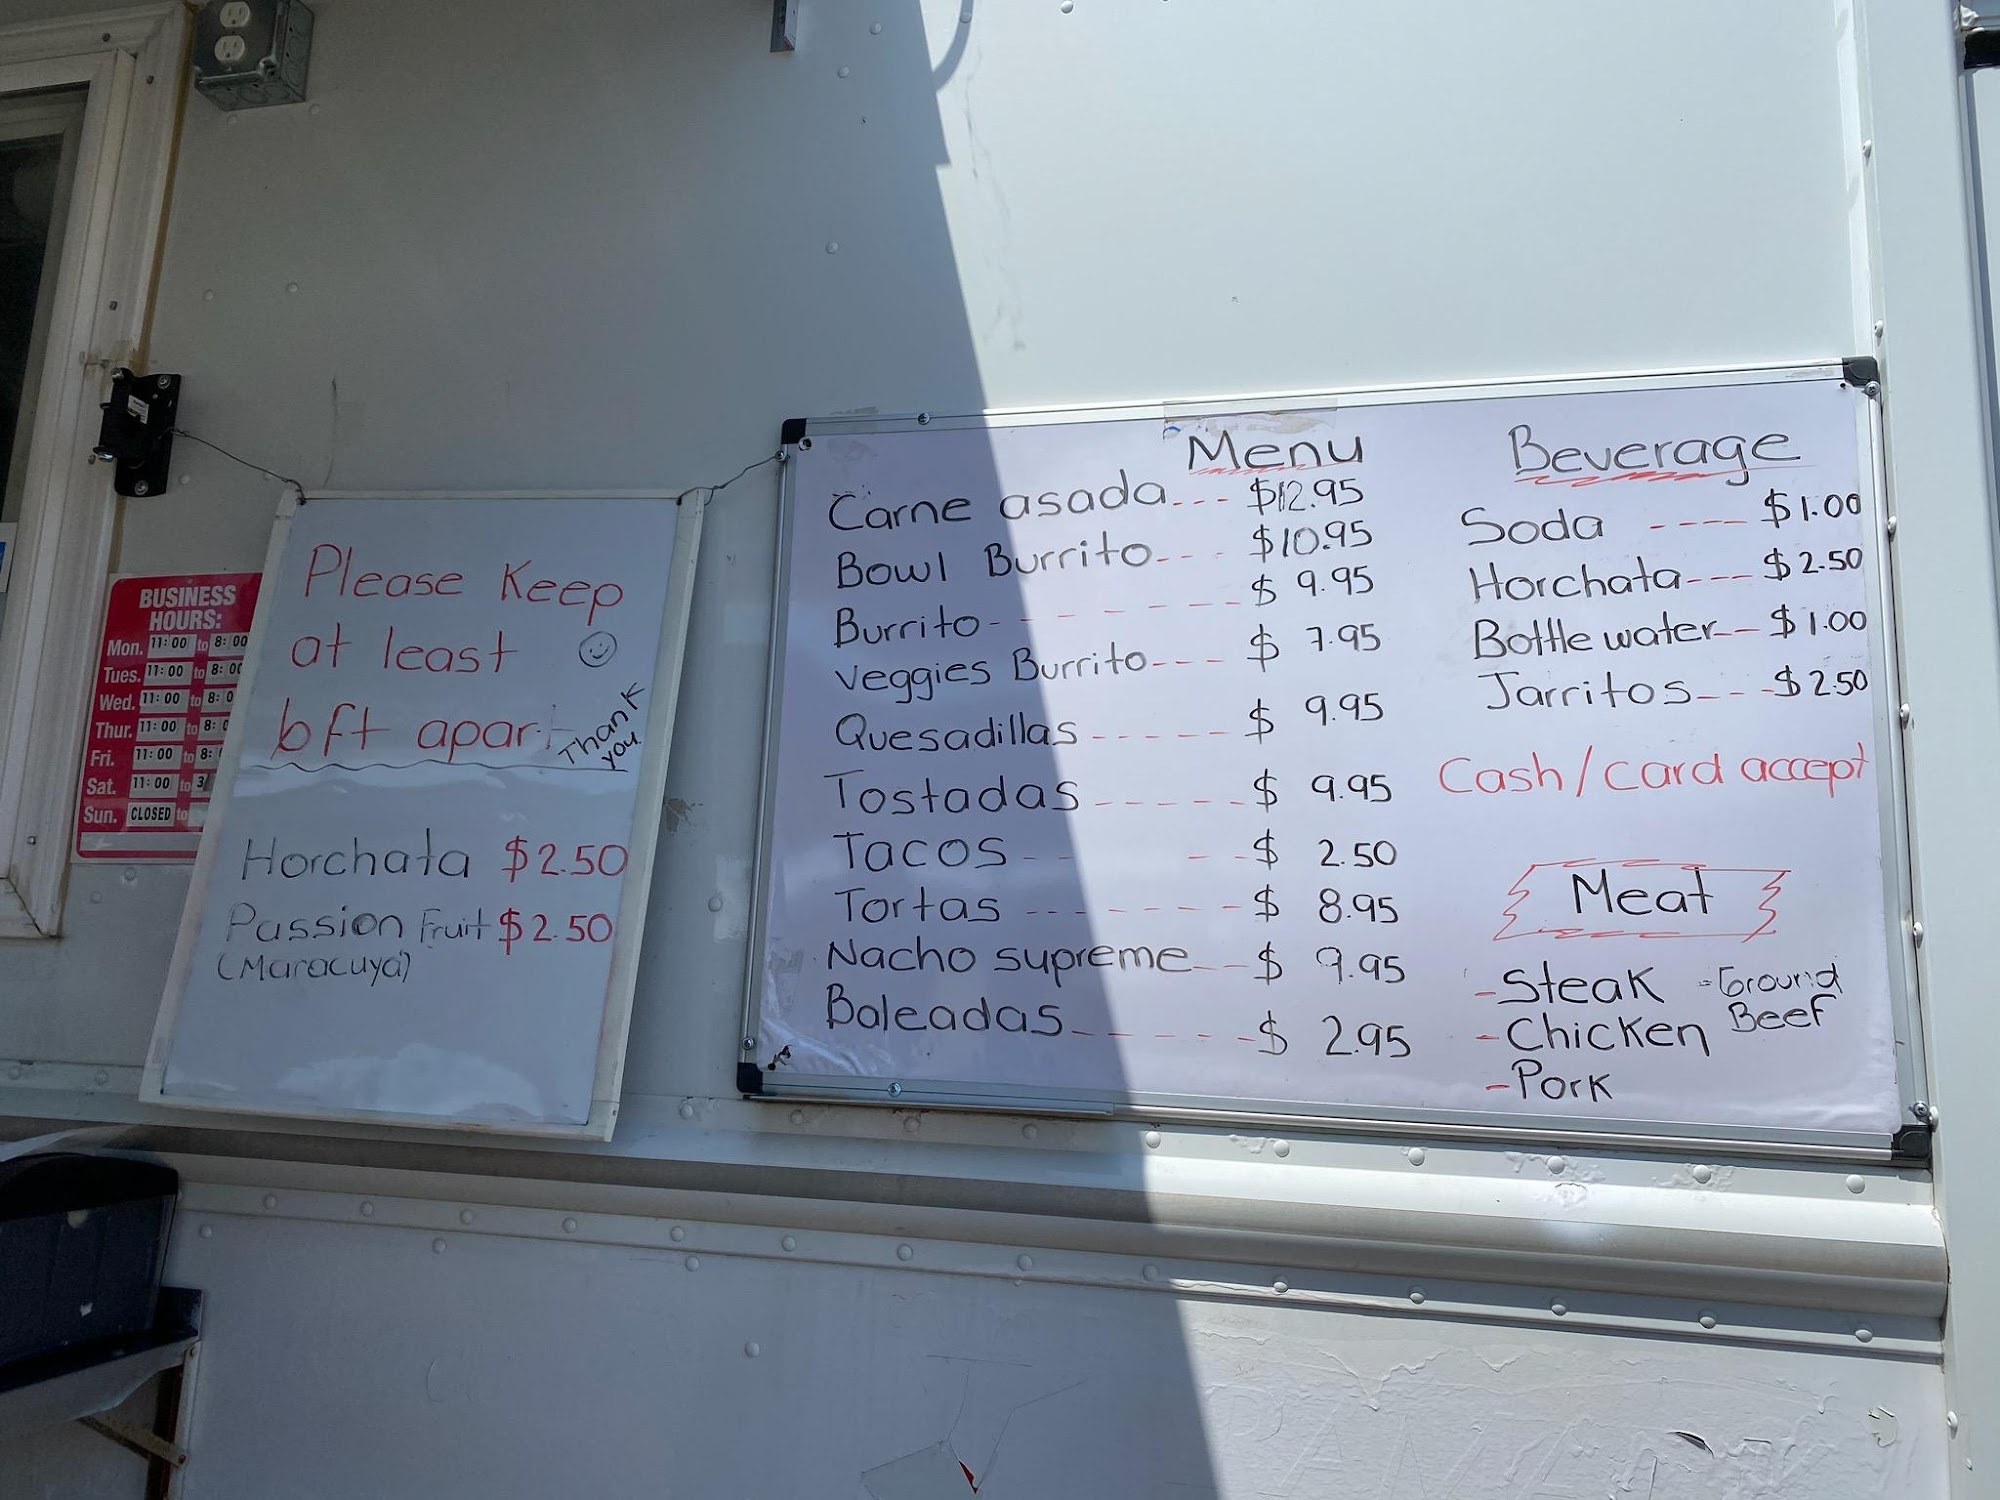 BUSINESS
HOURS:
Mon. 11:00 to 8:00
Tues. 11:00 to 8:00
Wed. 11:00 to 8:0
Thur. 11:00 to 8:
Fri. 11:00 to 8:
Sat. 11:00 to 3
Sun. CLOSED to
Please Keep
at least
6ft apart
Thank
you
Horchata $2.50
Passion Fruit $2.50
(Maracuya)
Menu
Carne asada --- $12.95
Bowl Burrito --- $10.95
Burrito ------- $ 9.95
veggies Burrito --- $ 7.95
Quesadillas ------ $ 9.95
Tostadas ------ $ 9.95
Tacos - -- $ 2.50
Tortas ------- $ 8.95
Nacho supreme -- $ 9.95
Baleadas ------ $ 2.95
Beverage
Soda ---- $1.00
Horchata --- $2.50
Bottle water -- $1.00
Jarritos --- $2.50
Cash/card accept
Meat
- Steak
- Chicken
- Pork
- Ground
Beef